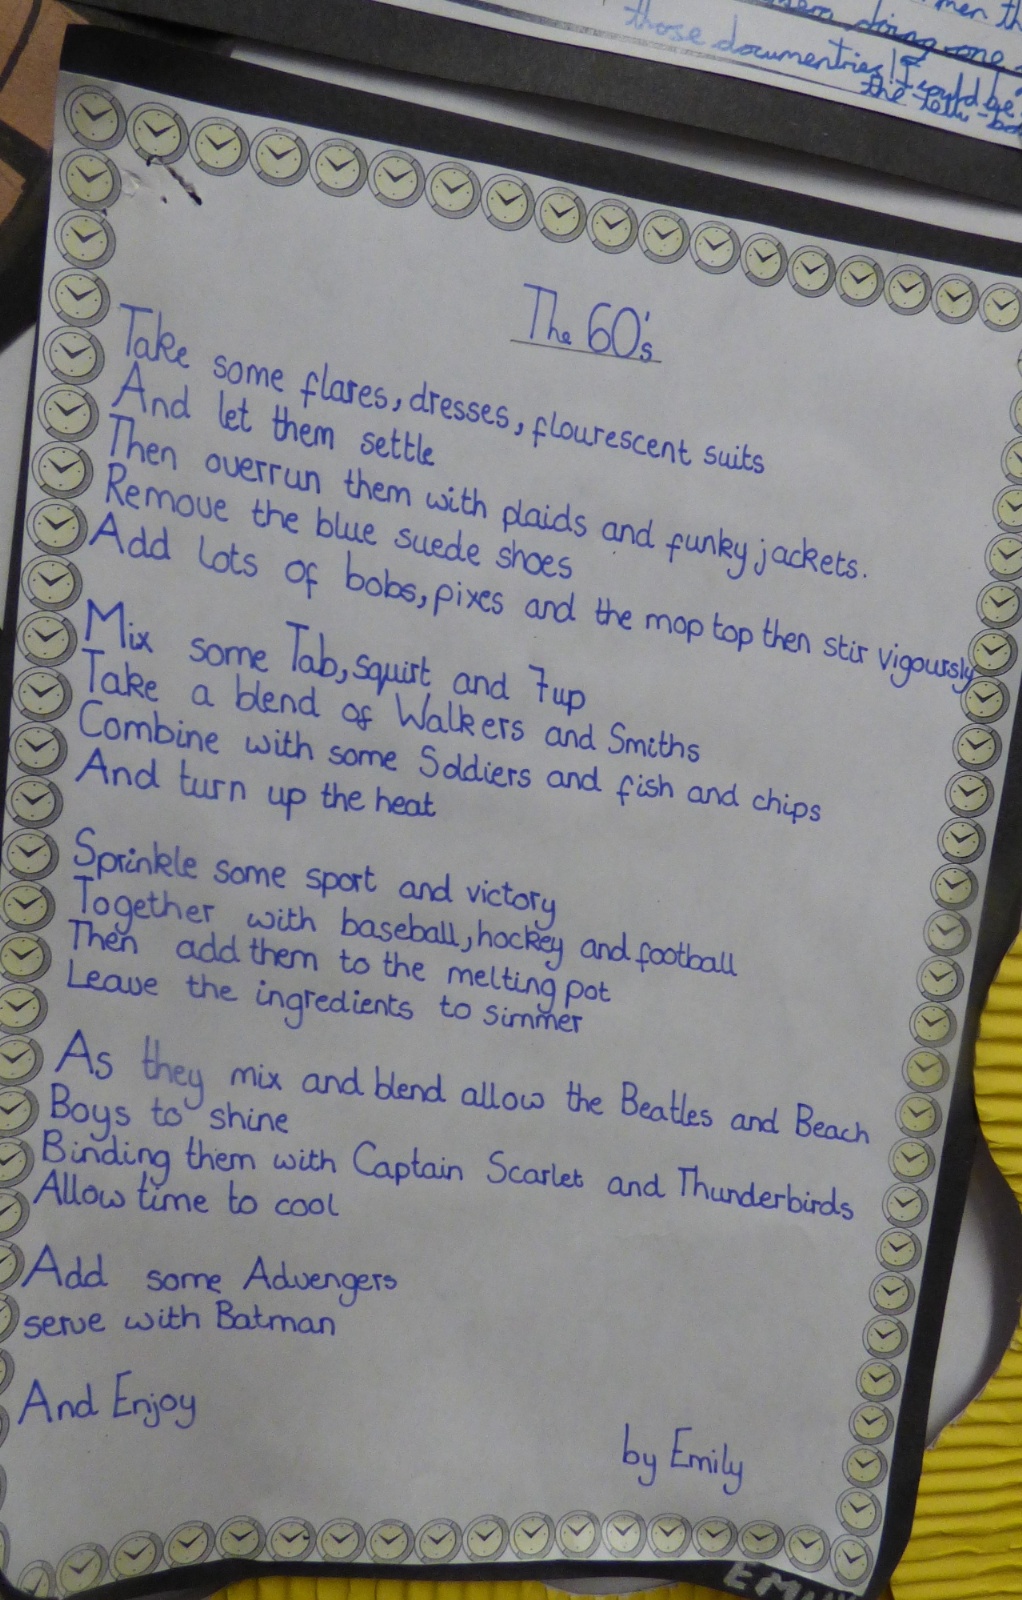 men th
doing one
those documentries! I could be
the telly-bo
The 60's
Take some flares, dresses, flourescent suits
And let them settle
Then overrun them with plaids and funky jackets.
Remove the blue suede shoes
Add lots of bobs, pixes and the mop top then stir vigoursly
Mix some Tab, squirt and 7up
Take a blend of Walkers and Smiths
Combine with some Soldiers and fish and chips
And turn up the heat
Sprinkle some sport and victory
Together with baseball, hockey and football
Then add them to the melting pot
Leave the ingredients to simmer
As they mix and blend allow the Beatles and Beach
Boys to shine
Binding them with Captain Scarlet and Thunderbirds
Allow time to cool
Add some Advengers
serve with Batman
And Enjoy
by Emily
EMILY